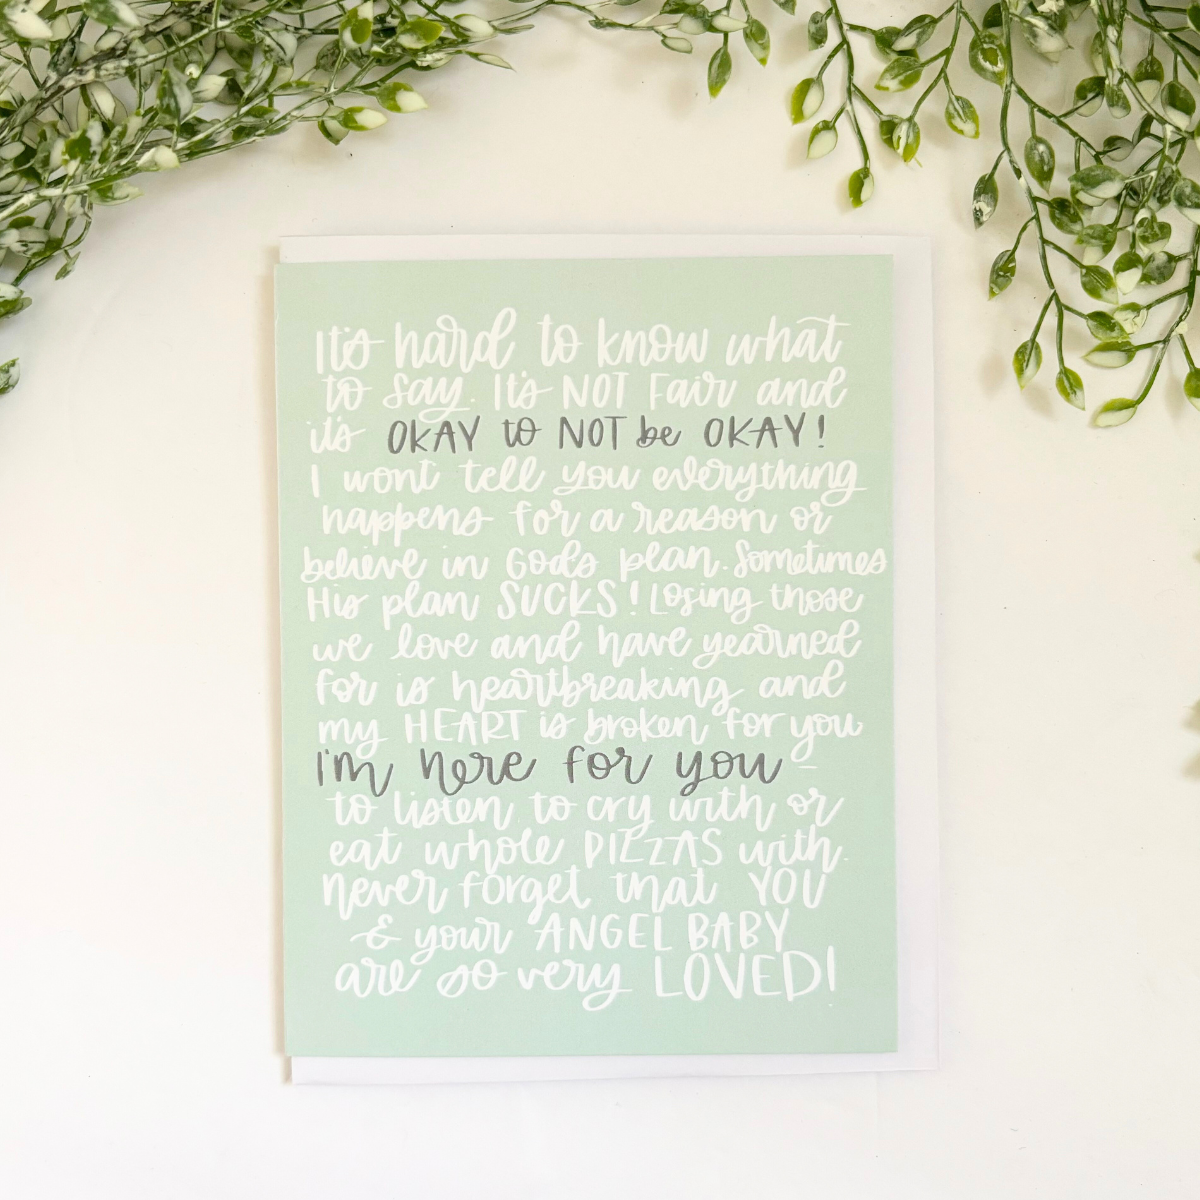 It's hard to know what
to say. It's NOT Fair and
it's OKAY to NOT be OKAY!
I won't tell you everything
happens for a reason or
believe in God's plan. Sometimes
His plan SUCKS! Losing those
we love and have yearned
for is heartbreaking and
my HEART is broken for you
I'm here for you –
to listen to cry with or
eat whole PIZZAS with.
never forget that YOU
& your ANGEL BABY
are so very LOVED!